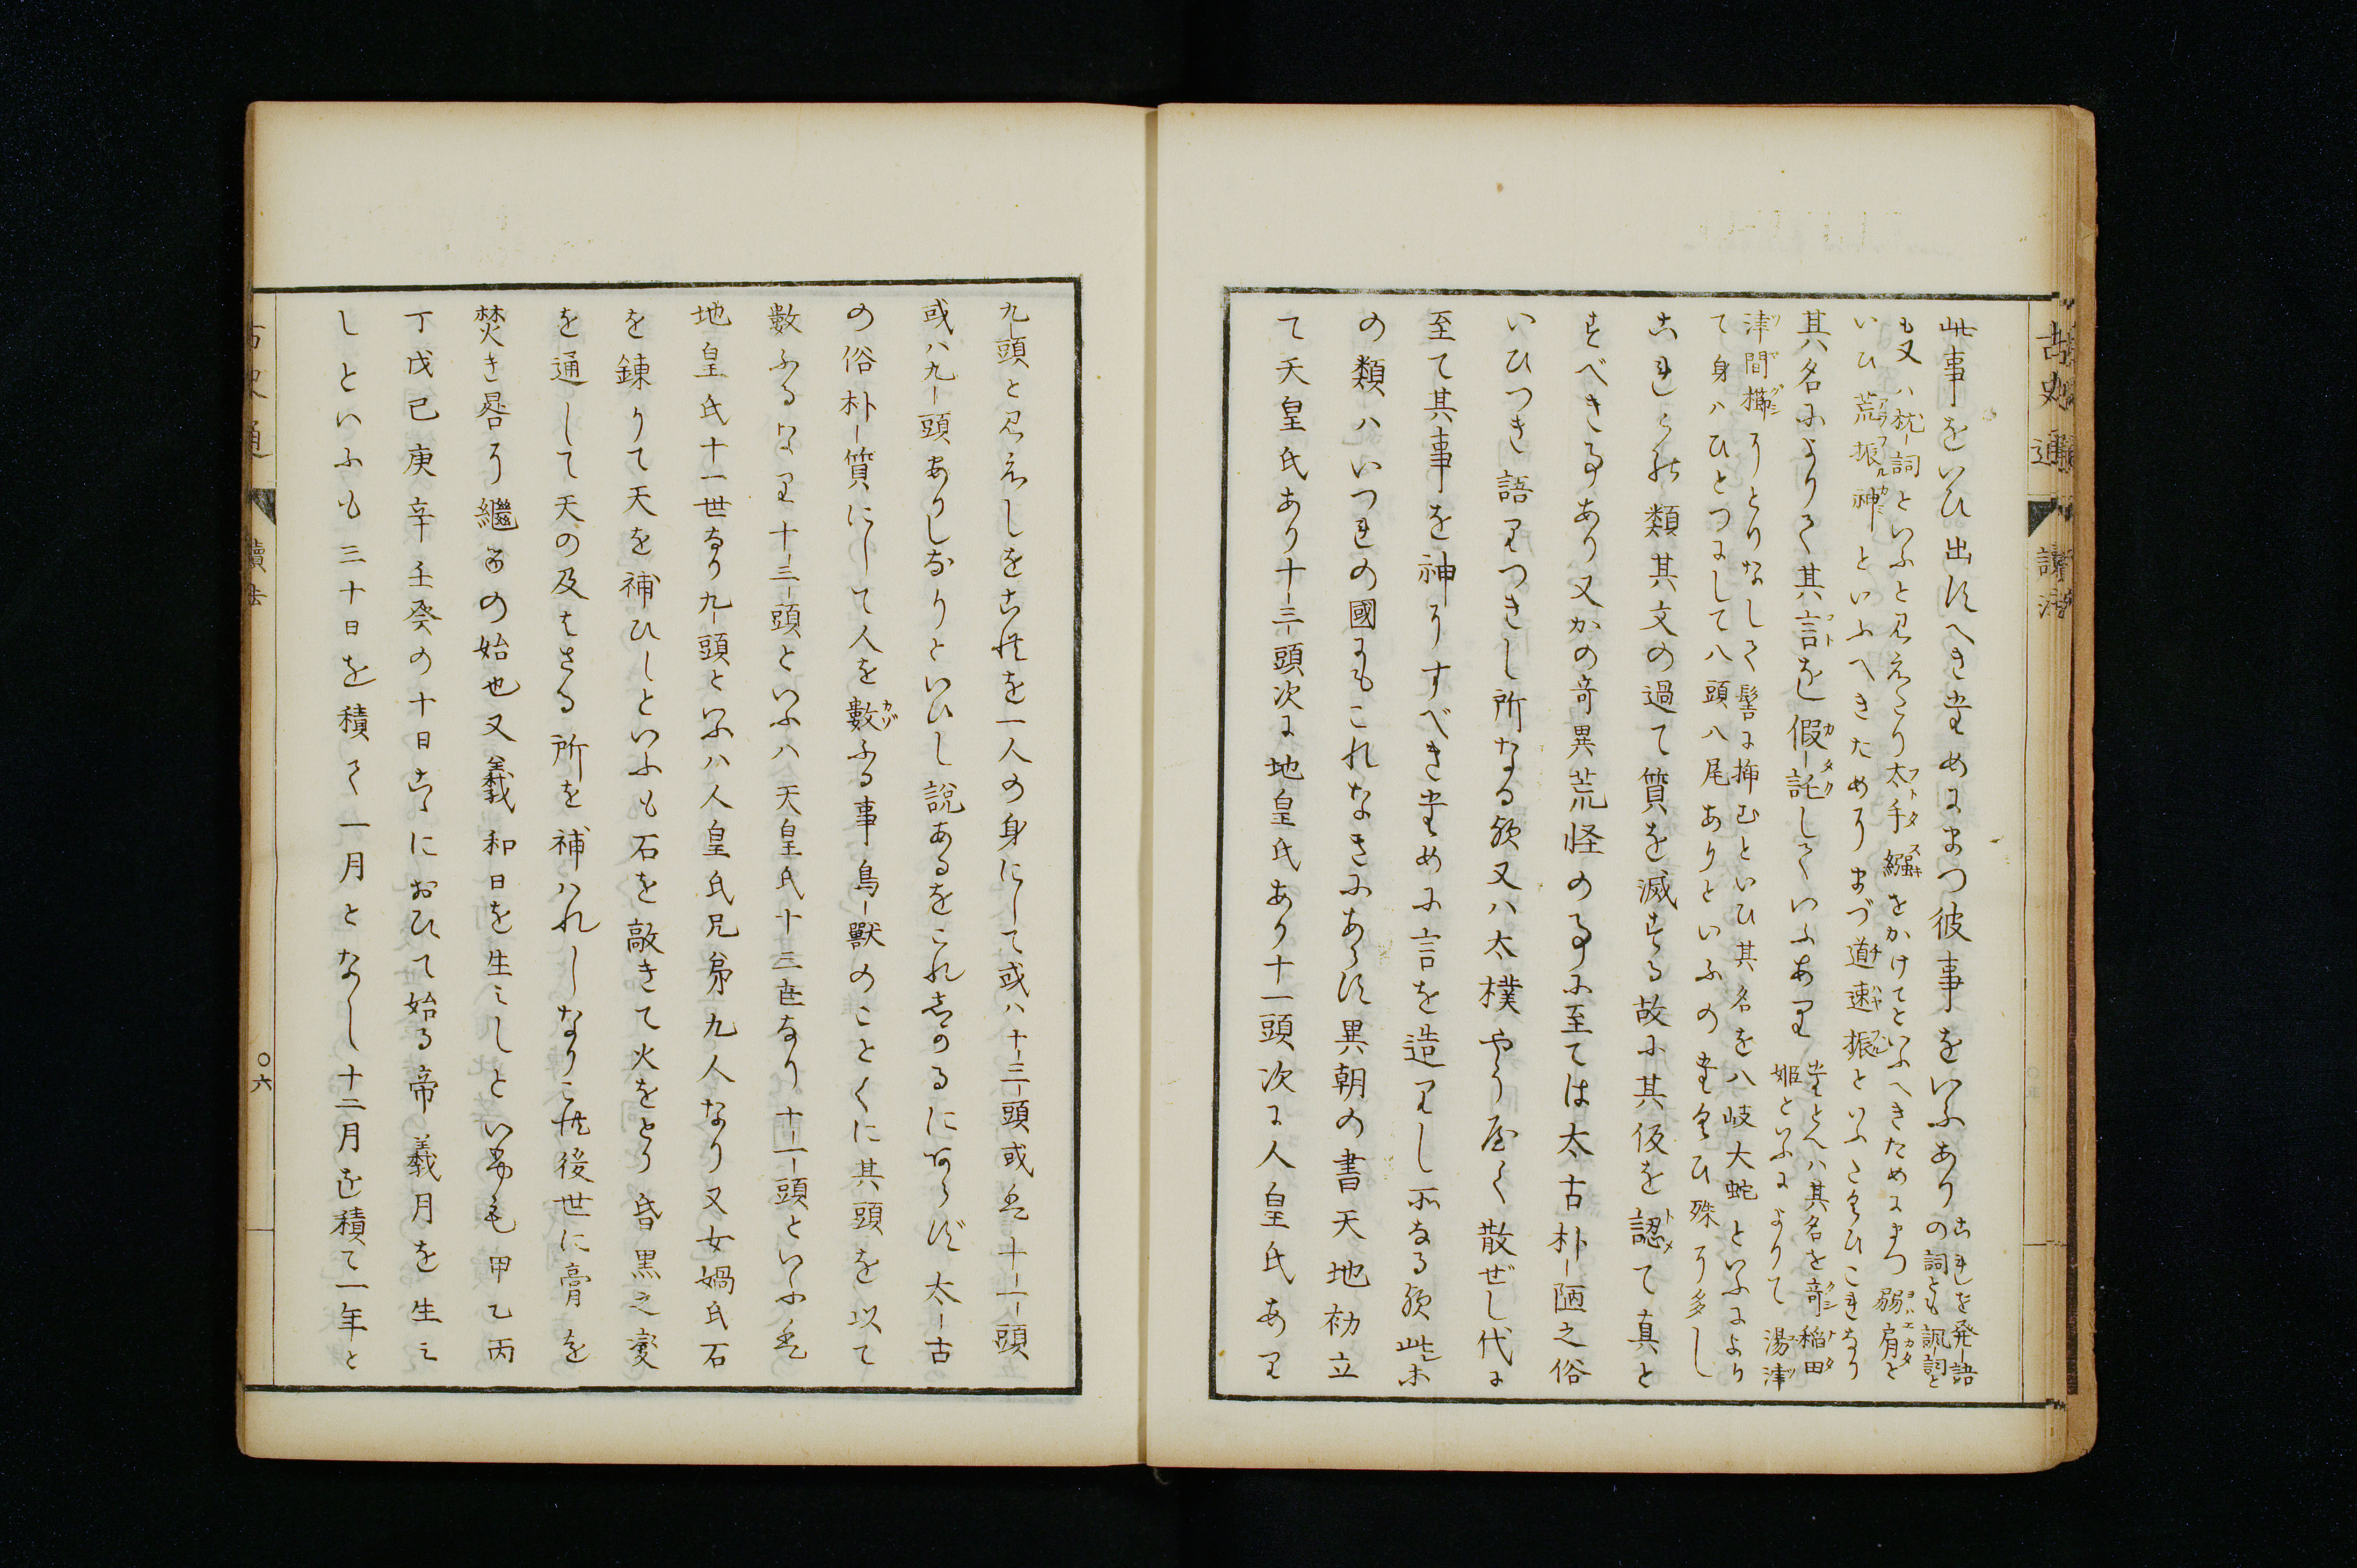 古史通
讀法
此事をいひ出すへきためにまつ彼事をいふあり これを発語
の詞とも諷詞と
も又ハ枕詞といふと見えたり太手繦をかけてといふへきためにまつ弱肩を
いひ荒振神といふへきためにまづ道速振といふたくひこれなり
其名によりて其言をし假託していふあり たとへハ其名を竒稲田
姫といふによりて湯津
津間櫛にとりなして髻に挿むといひ其名を八岐大蛇といふにより
て身ハひとつにして八頭八尾ありといふのたくひ殊に多し
これらの類其文の過て質を滅する故に其仮を認て真と
すべき事あり又かの竒異荒怪の事に至ては太古朴陋之俗
いひつき語りつきし所なる歟又ハ太樸やうやく散ぜし代に
至て其事を神にすべきために言を造りし所なる歟此等
の類ハいつれの國にもこれなきにあらす異朝の書天地初立
て天皇氏あり十三頭次に地皇氏あり十一頭次に人皇氏あり
九頭と見えしをこれを一人の身にして或ハ十三頭或は十一頭
或ハ九頭ありしなりといひし説あるをこれしかるにあらず太古
の俗朴質にして人を數ふる事鳥獣のことくに其頭を以て
數ふるなり十三頭といふハ天皇氏十三世なり十一頭といふは
地皇氏十一世なり九頭といふハ人皇氏兄弟九人なり又女媧氏石
を錬りて天を補ひしといふも石を敲きて火をとり昏黒之変
を通して天の及はさる所を補ハれしなりこれ後世に膏を
焚き晷に繼くの始也又羲和日を生みしといふも甲乙丙
丁戊己庚辛壬癸の十日こゝにおひて始る帝羲月を生み
しといふも三十日を積て一月となし十二月を積て一年と
古史通
讀法
〇六